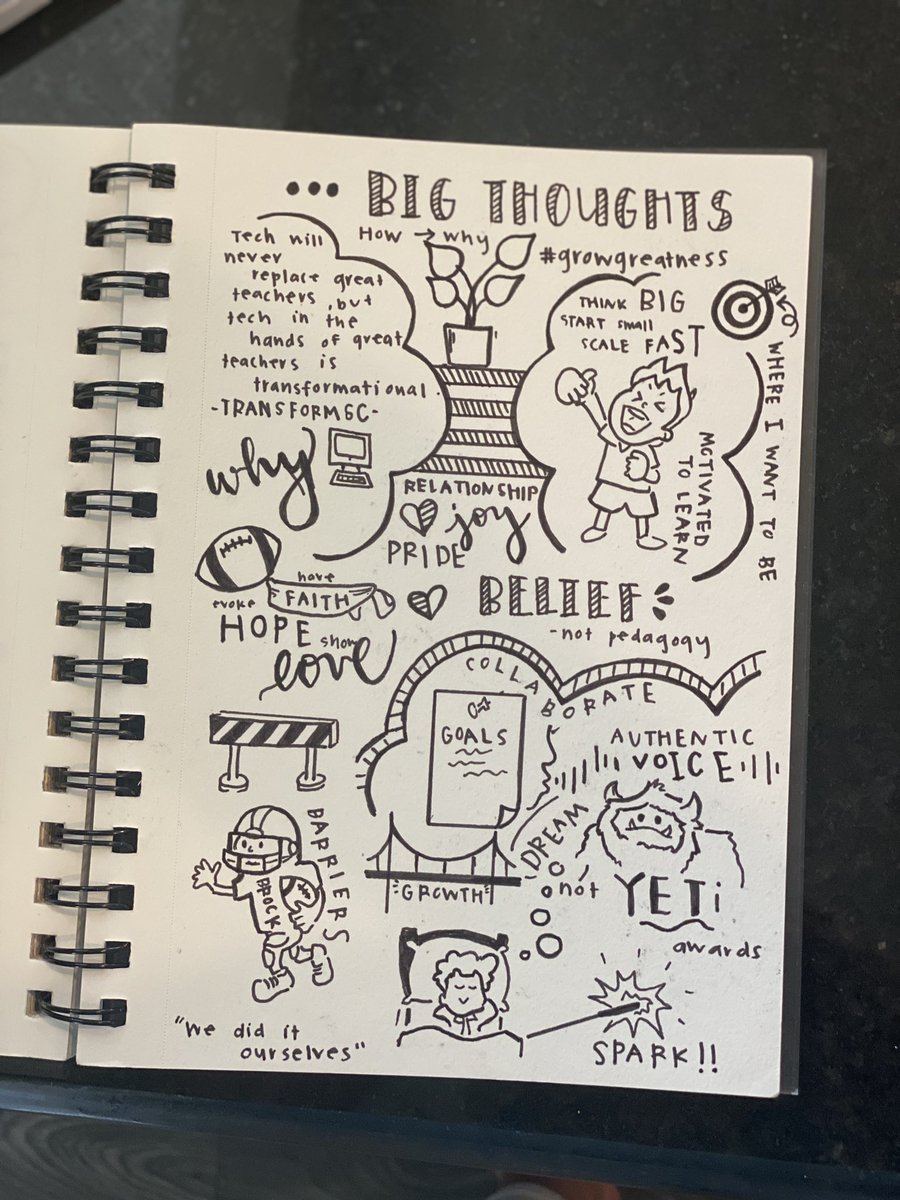 ... BIG THOUGHTS
Tech will
never
replace great
teachers, but
tech in the
hands of great
teachers is
transformational.
-TRANSFORM SC-
why
HOW → why
#growgreatness
THINK BIG
START small
SCALE FAST
MOTIVATED
TO LEARN
WHERE I WANT TO BE
RELATIONSHIP
joy
PRIDE
have
FAITH
evoke
HOPE show
love
BELIEF
-not pedagogy
COLLABORATE
GOALS
AUTHENTIC
VOICE
DREAM
GROWTH
not YETi
awards
BARRIERS
BROCK
"We did it
ourselves"
SPARK!!